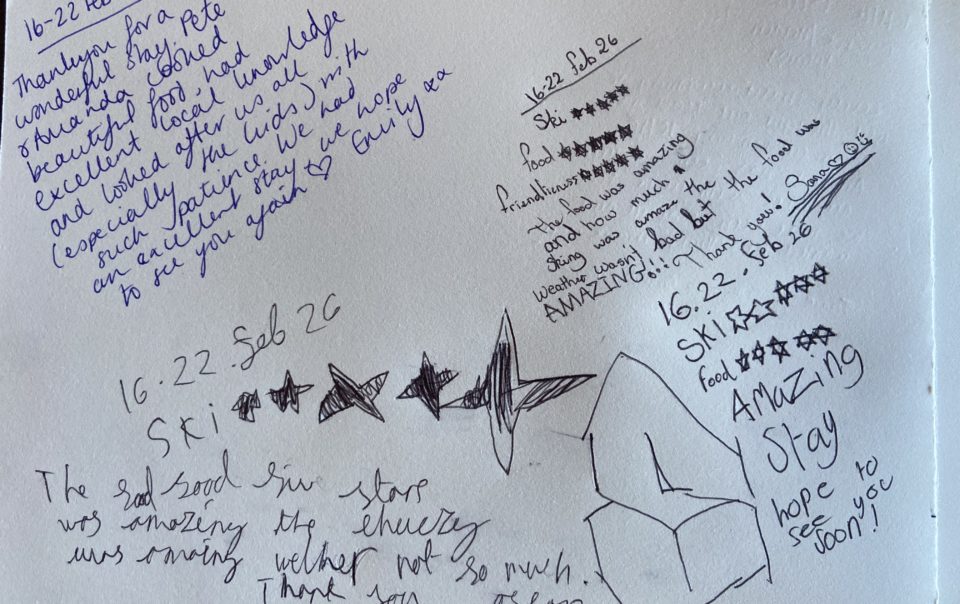 16-22 Feb
Thankyou for a
wonderful stay, Pete
& Amanda cooked
beautiful food, had
excellent local knowledge
and looked after us all
(especially the kids) with
such patience. We had
an excellent stay & we hope
to see you again ♡ Emily xx
16-22 feb 26
Ski ★★★★★
food ★★★★★
friendlieness ★★★★★
the food was amazing
and how much
skiing was amaze the the food was
weather wasn't bad but
AMAZING!!! Thank you! Sana ♡☺
16.22.feb 26
SKi ☆☆★★★
food ★★★★★
AMaZing
Stay
hope to
see you
soon!
16.22.feb 26
Ski ★★★★★
The sood stars
was amazing the
was amaing wether not so much.
Thank you